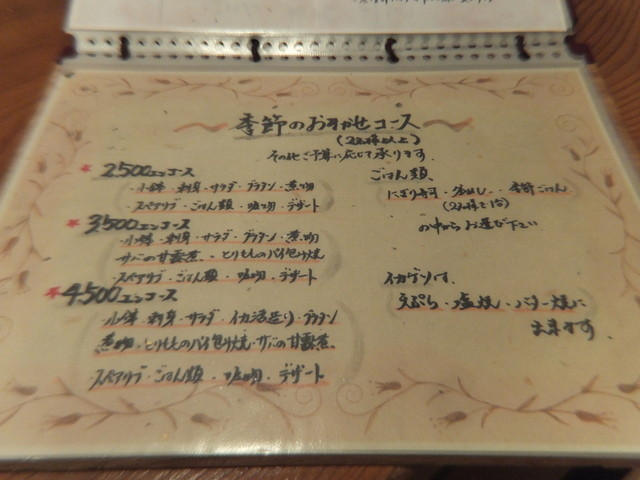 季節のおまかせコース
(2名様以上)
その他ご予算に応じて承ります。
2,500エンコース
小鉢・刺身・サラダ・グラタン・煮物
スペアリブ・ごはん類・吸物・デザート
3,500エンコース
小鉢・刺身・サラダ・グラタン・煮物
サバの甘露煮・とりもものパイ包み焼
スペアリブ・ごはん類・吸物・デザート
4,500エンコース
小鉢・刺身・サラダ・イカ活造り・グラタン
煮物・とりもものパイ包み焼・サバの甘露煮
スペアリブ・ごはん類・吸物・デザート
ごはん類
にぎり寿司・・季節ごはん
の中からお選び下さい
イカゲソは、
天ぷら・塩焼・バター焼に
出来ます。